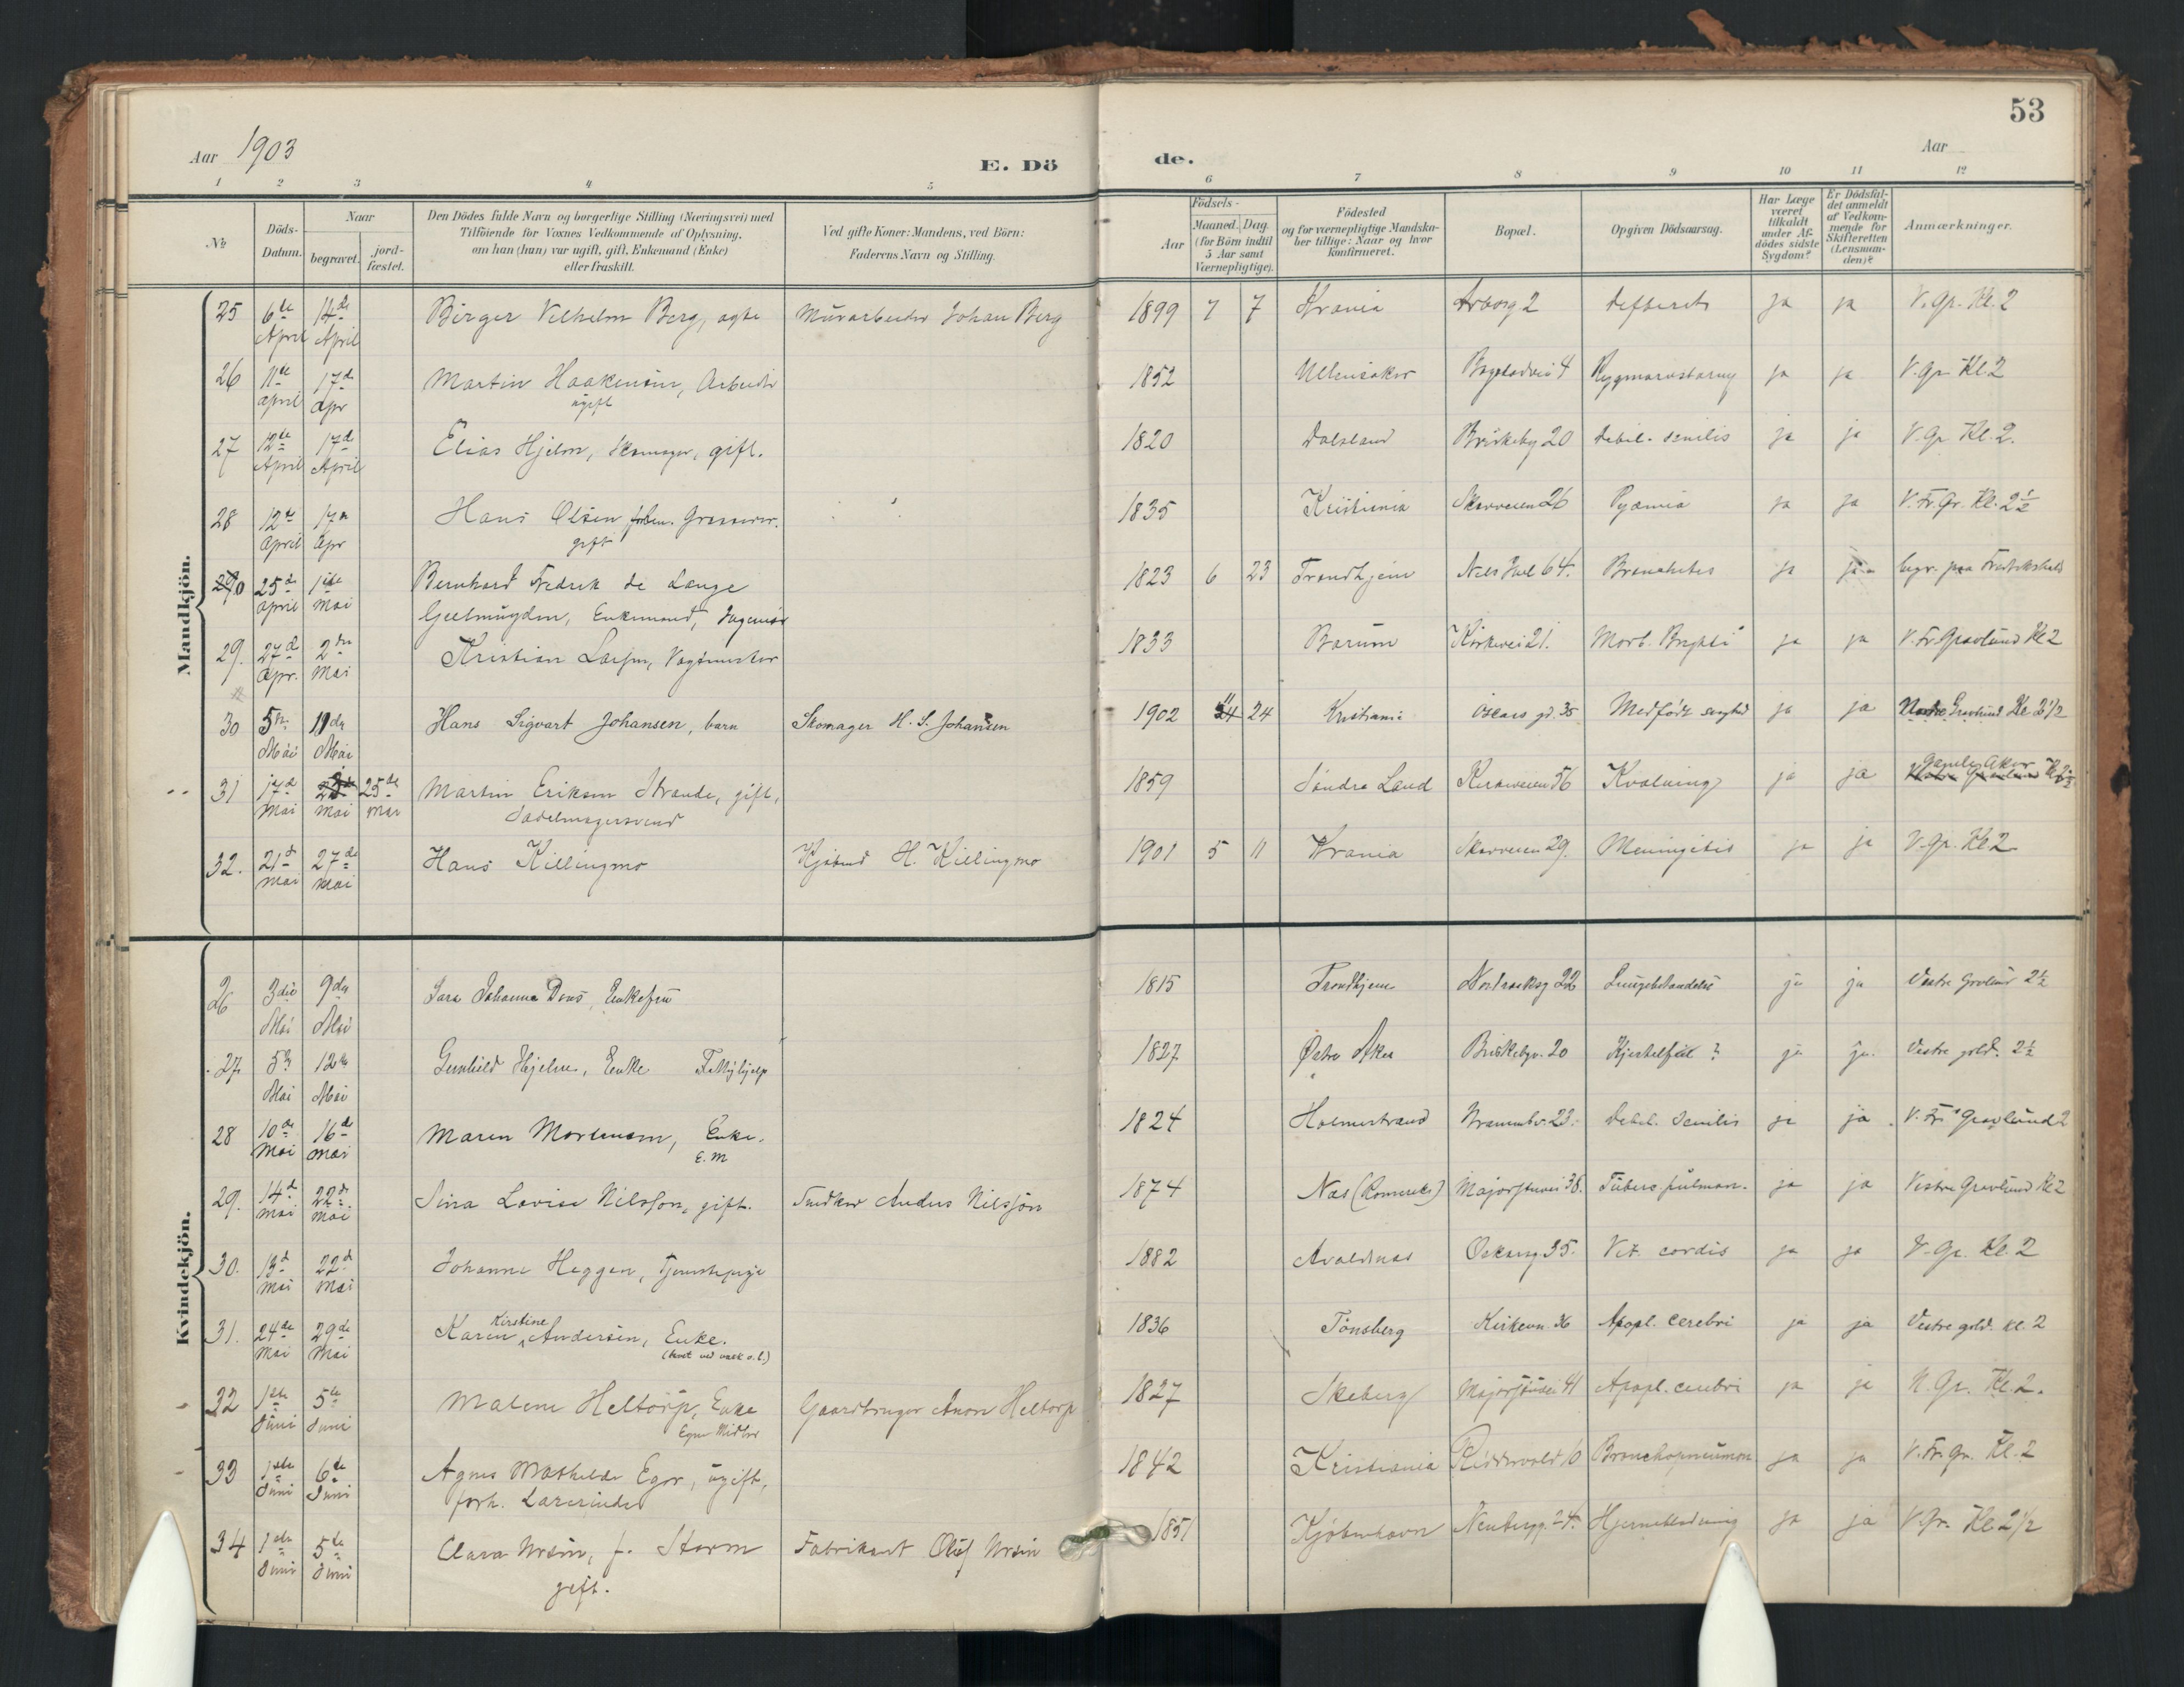 53
Aar 1903
E. Dö
de.
Aar
1 2 3 4 5 6 7 8 9 10 11 12
№
Döds-
Datum.
Naar
begravet.
jord-
fæstet.
Den Dödes fulde Navn og borgerlige Stilling (Næringsvei) med
Tilföiende for Voxnes Vedkommende af Oplysning,
om han (hun) var ugift, gift, Enkemand (Enke)
eller fraskilt.
Ved gifte Koner: Mandens, ved Börn:
Faderens Navn og Stilling.
Födsels-
Aar
Maaned. Dag.
(for Börn indtil
5 Aar samt
Værnepligtige).
Födested
og for værnepligtige Mandska-
ber tillige: Naar og hvor
konfirmeret.
Bopæl.
Opgiven Dödsaarsag.
Har Læge
været
tilkaldt
under Af-
dödes sidste
Sygdom?
Er Dödsfal-
det anmeldt
af Vedkom-
mende for
Skifteretten
(Lensman-
den)?
Anmærkninger.
Mandkjön.
25 6te April 14de April Birger Vilhelm Berg, ægte Murarbeider Johan Berg 1899 7 7 Krania Arborg 2 Difterit ja ja V. Gr. Kl. 2
26 11te April 17de Apr Martin Haakensen, Arbeider 1852 Ullensaker 4 Rygmarvstæring ja ja V. Gr Kl. 2
ugift
27 12te April 17de April Elias Hjelm, Skomager, gift. 1820 Dalsland Briskeby 20 Debil. senilis ja ja V. Gr Kl. 2.
28 12te April 17de Apr Hans Olsen 1835 Kristiania Skovveien 26 Pyæmia ja ja V. Fr. Gr. Kl. 2½
gift
25de April 1ste Mai Bernhard Fredrik de Lange 1823 6 23 Trondhjem Nils Juel 64. Bronchites ja ja begr. paa Fredrikshald
Geelmuyden, Enkemand, Ingeniør
29. 27de Apr. 2den Mai Kristian Larsen, Vagtmester 1833 Bærum Kirkevei 21. Morb. Brighti ja ja V. Fr. Gravlund Kl 2
30 5te Mai 11de Mai Hans Sigvart Johansen, barn Skomager H. S. Johansen 1902 11 24 Kristiania Oscars gd. 35 Medfødt svaghed ja ja Nordre Gravlund Kl 2½
31 17de Mai Mai 25de Mai Martin Eriksen Strande, gift, 1859 Søndre Land Kirkeveien 56 Kvælning ja ja Gamle Aker
Sadelmagersvend
32. 21de Mai 27de Mai Hans Killingmo Kjøbmd H. Killingmo 1901 5 11 Krania Skovveien 29. Meningitis ja ja V. Gr. Kl 2
Kvindekjön.
26 3die Mai 9de Mai Sara Johanna Dons, Enkefru 1815 Trondhjem 22 Lungebetændelse ja ja Vestre Gravlund 2½
27 5te Mai 12te Mai Gunhild Hjelm, Enke 1827 Østre Aker Briskebyv. 20 Hjertefeil ? ja ja Vestre gvld. 2½
28 10de Mai 16de Mai Maren Mortensen, Enke. 1824 Holmestrand 23. Debil. senilis ja ja V. Fr. Gravlund 2
E. M
29. 14de Mai 22de Mai Sina Lovise Nilsson, gift. Snedker Anders Nilsson 1874 Næs (Romerike) Majorstuvei 38. Tubere pulmon. ja ja Vestre Gravlund Kl 2
30. 18de Mai 22de Mai Johanne Heggen, Tjenestepige 1882 Avaldsnæs Oskarsg. 35. Vit. cordis ja ja V. Gr. Kl. 2
31. 24de Mai 29de Mai Karen Kirstine Andersen, Enke. 1836 Tönsberg Kirkevn. 36 Apopl. cerebri ja ja Vestre gvld. Kl. 2
(levet ved vask o. l.)
32 1ste Juni 5te Juni Malene Heltorp, Enke Gaardbruger Anon Heltorp 1827 Skeberg Majorstuvei 41 Apopl. cerebri ja ja N. Gr. Kl. 2.
Egne Midler
33 1ste Juni 6te Juni Agnes Mathilde Eger, ugift, 1842 Kristiania Riddervold 10 Bronchopneumon ja ja V. Fr. Gr. Kl. 2
forh. Lærerinde
34 1ste Juni 5te Juni Clara Ursin, f. Storm Fabrikant Oluf Ursin 1851 Kjøbenhavn Neubergg. 24. Hjerneblødning ja ja V. Gr. Kl 2½
gift.